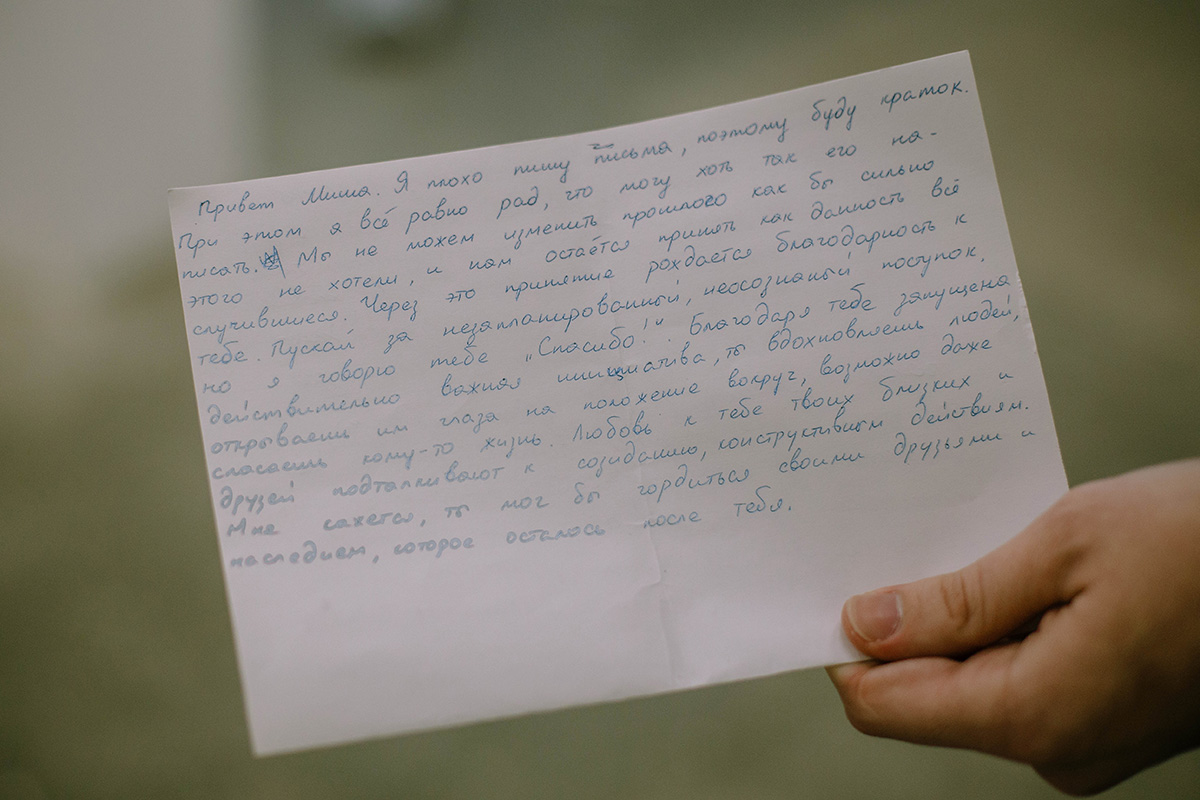 Привет Миша. Я плохо пишу письма, поэтому буду краток.
При этом я всё равно рад, что могу хоть так его на-
писать. Мы не можем изменить прошлого как бы сильно
этого не хотели, и нам остаётся принять как данность всё
случившиеся. Через это принятие рождается благодарность к
тебе. Пускай за незапланированный, неосознаный поступок,
но я говорю тебе „Спасибо!". Благодаря тебе запущена
действительно важная инициатива, ты вдохновляешь людей,
открываешь им глаза на положение вокруг, возможно даже
спасаешь кому-то жизнь. Любовь к тебе твоих близких и
друзей подталкивают к созиданию, конструктивным действиям.
Мне кажется, ты мог бы гордиться своими друзьями и
наследием, которое осталось после тебя.